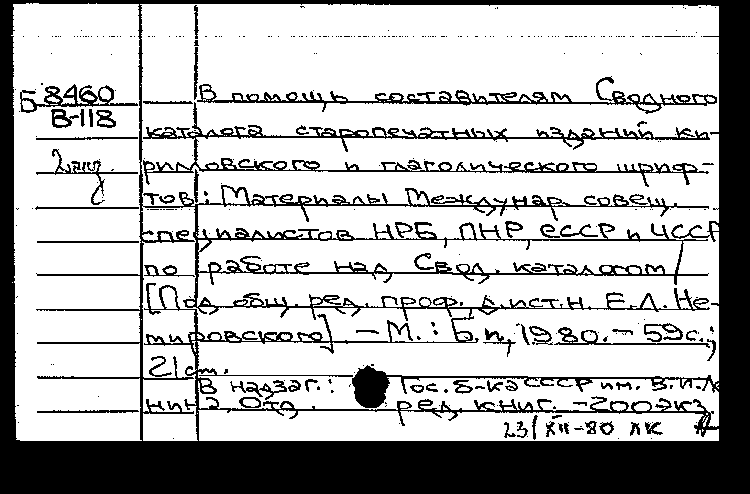 Б 8460
В-118
2 экз.
В помощь составителям Сводного
каталога старопечатных изданий ки-
рилловского и глаголического шриф-
тов: Материалы Междунар. совещ.
специалистов НРБ, ПНР, СССР и ЧССР
по работе над Свод. каталогом /
[Под общ. ред. проф., д.ист.н. Е.Л. Не-
мировского]. – М.: Б.и., 1980. – 59с.;
21см.
В надзаг.: Гос. б-ка СССР им. В.И. Ле
нина, Отд. ред. книг. – 200экз.
23/XII-80 ЛК